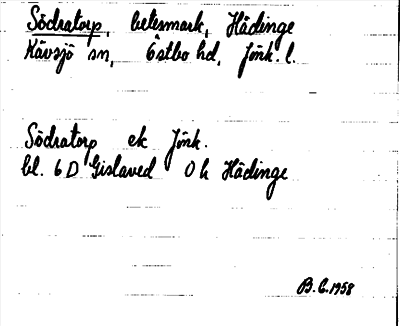 Södratorp, betesmark, Hådinge
Kävsjö sn, Östbo hd, Jönk. l.
Södratorp ek Jönk.
bl. 6 D Gislaved 0 h Hådinge
B. E. 1958